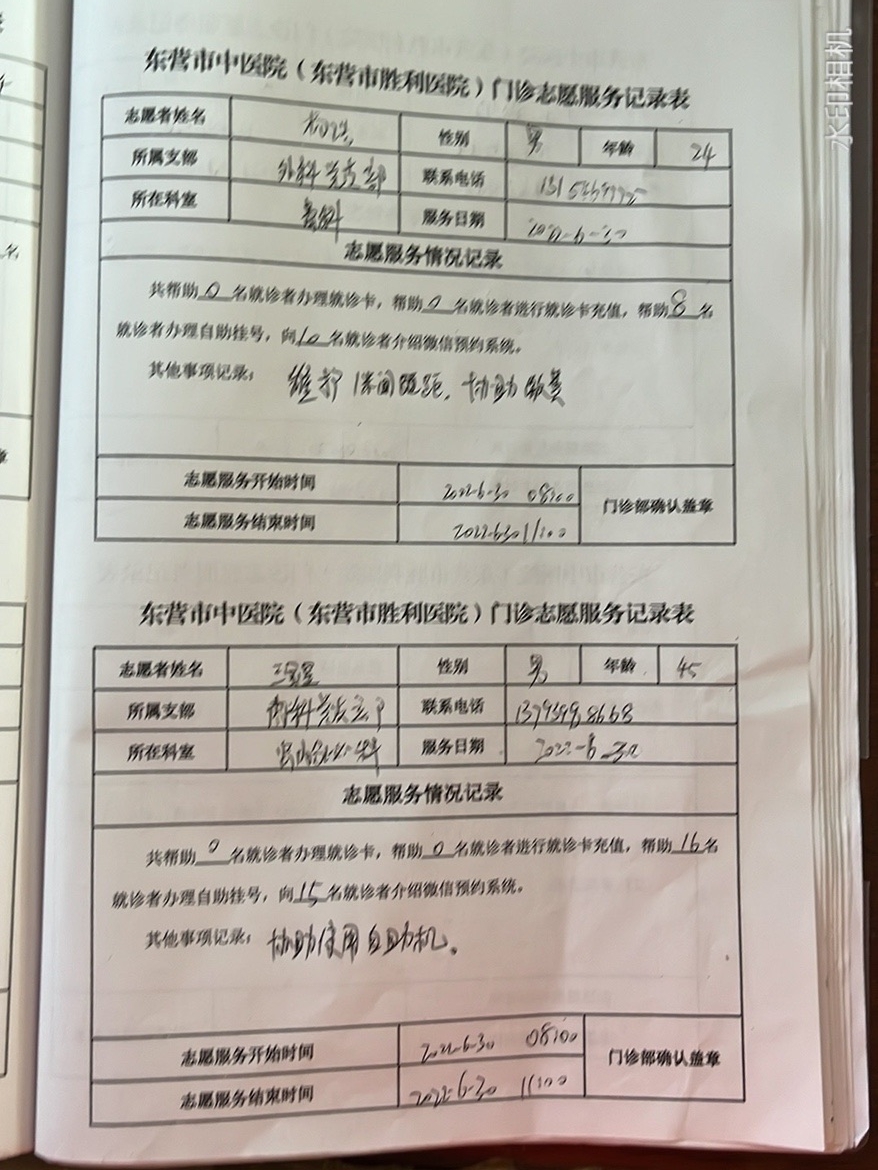 水印相机
东营市中医院（东营市胜利医院）门诊志愿服务记录表
志愿者姓名 性别 男 年龄 24
所属支部 外科党支部 联系电话
所在科室 服务日期 2022-6-30
志愿服务情况记录
共帮助 0 名就诊者办理就诊卡，帮助 0 名就诊者进行就诊卡充值，帮助 8 名
就诊者办理自助挂号，向 10 名就诊者介绍微信预约系统。
其他事项记录： 维护 间距，协助
志愿服务开始时间 2022-6-30 08:00 门诊部确认盖章
志愿服务结束时间 2022-6-30 11:00
东营市中医院（东营市胜利医院）门诊志愿服务记录表
志愿者姓名 性别 男 年龄 45
所属支部 外科党支部 联系电话
所在科室 服务日期 2022-6-30
志愿服务情况记录
共帮助 0 名就诊者办理就诊卡，帮助 0 名就诊者进行就诊卡充值，帮助 16 名
就诊者办理自助挂号，向 15 名就诊者介绍微信预约系统。
其他事项记录： 协助使用自助机。
志愿服务开始时间 2022-6-30 08:00 门诊部确认盖章
志愿服务结束时间 2022-6-30 11:00